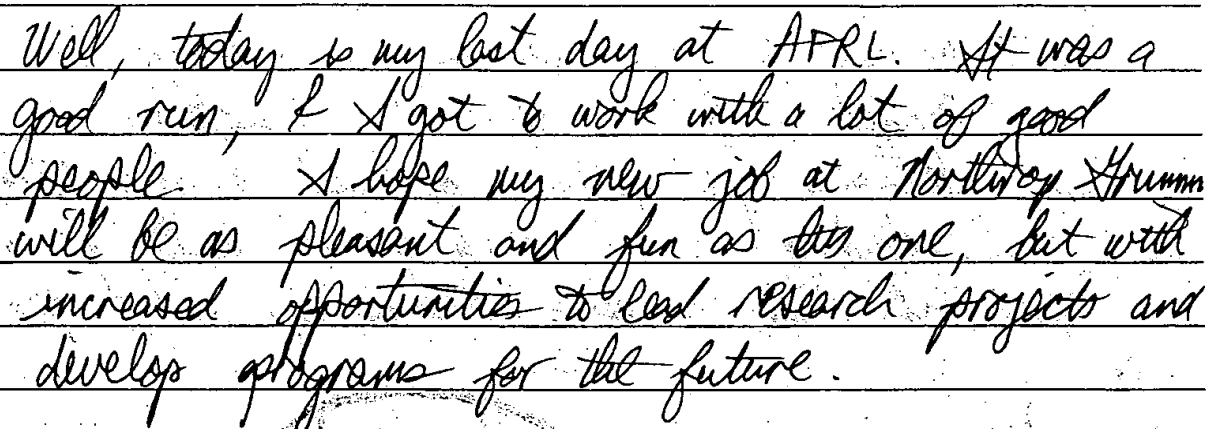 Well, today is my last day at AFRL. It was a
good run, & I got to work with a lot of good
people. I hope my new job at Northrop Grumm
will be as pleasant and fun as this one, but with
increased opportunities to lead research projects and
develop programs for the future.